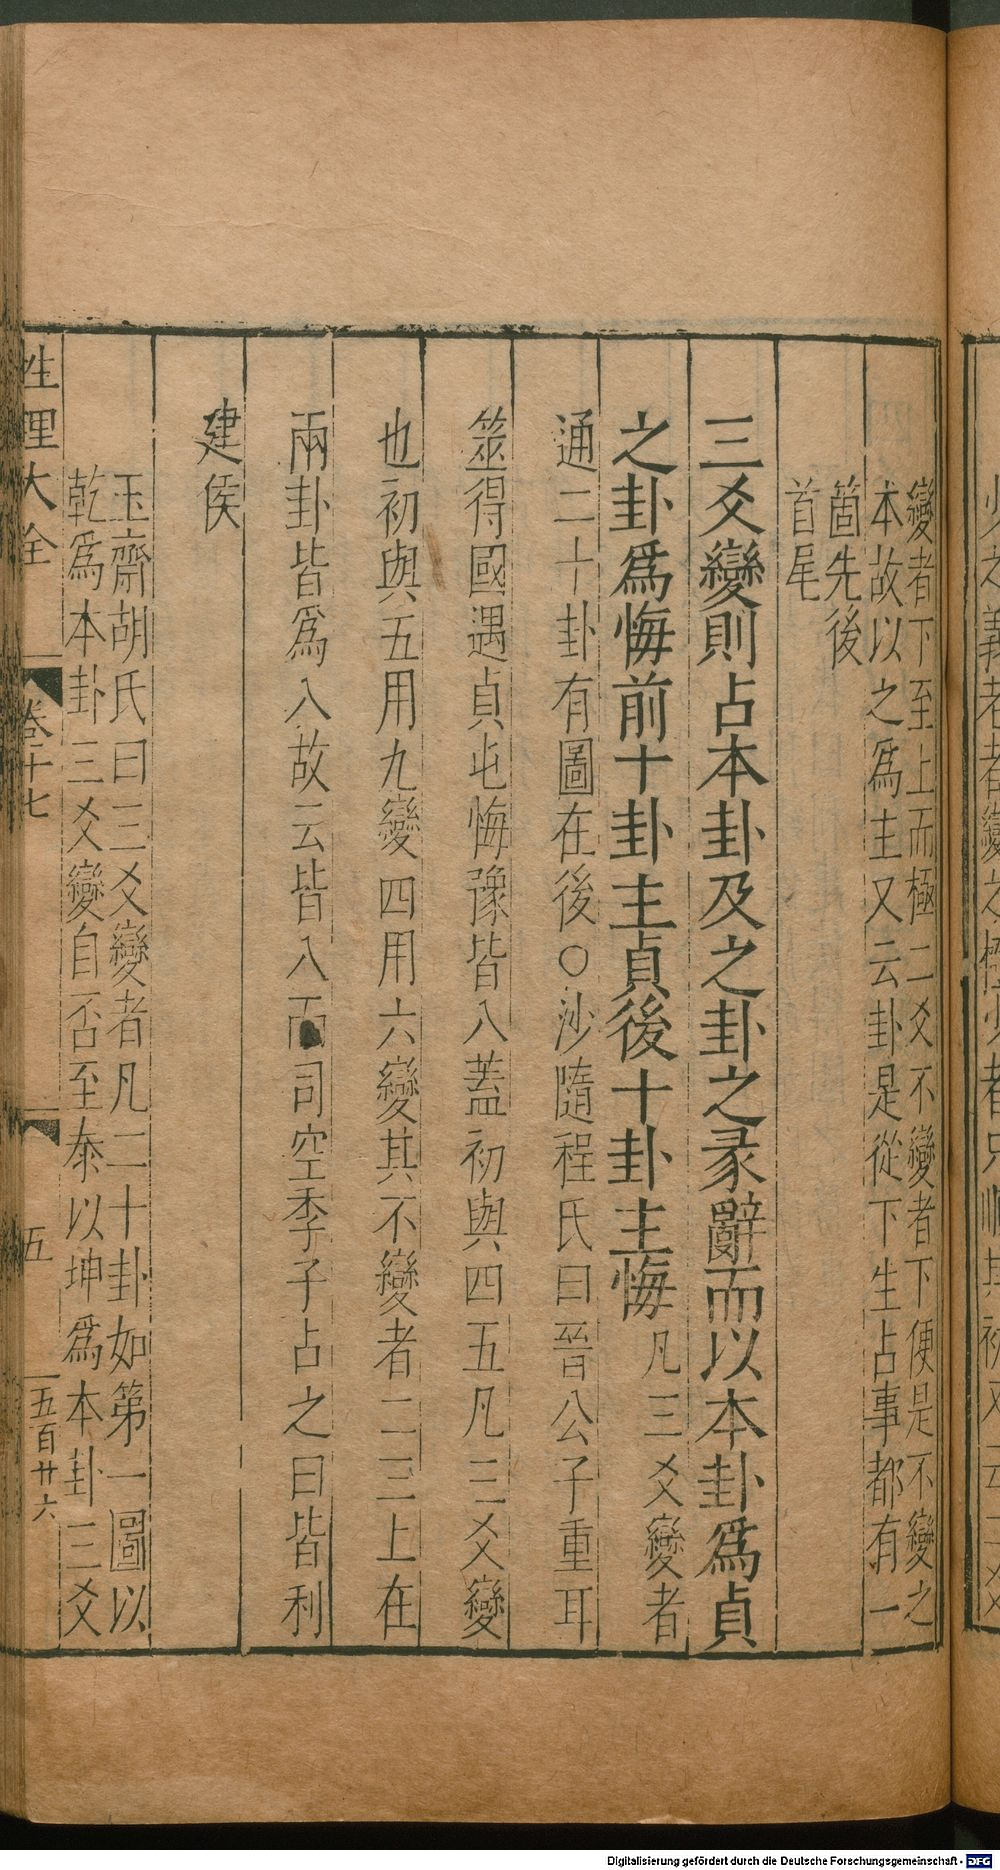 變者下至上而極二爻不變者下便是不變之
本故以之爲主又云卦是從下生占事都有一
箇先後
首尾
三爻變則占本卦及之卦之彖辭而以本卦爲貞
之卦爲悔前十卦主貞後十卦主悔凡三爻變者
通二十卦有圖在後○沙隨程氏曰晉公子重耳
筮得國遇貞屯悔豫皆八蓋初與四五凡三爻變
也初與五用九變四用六變其不變者二三上在
兩卦皆爲八故云皆八而司空季子占之曰皆利
建侯
玉齋胡氏曰三爻變者凡二十卦如第一圖以
乾爲本卦三爻變自否至泰以坤爲本卦三爻
性理大全
卷十七
五
五百廿六
Digitalisierung gefördert durch die Deutsche Forschungsgemeinschaft - DFG